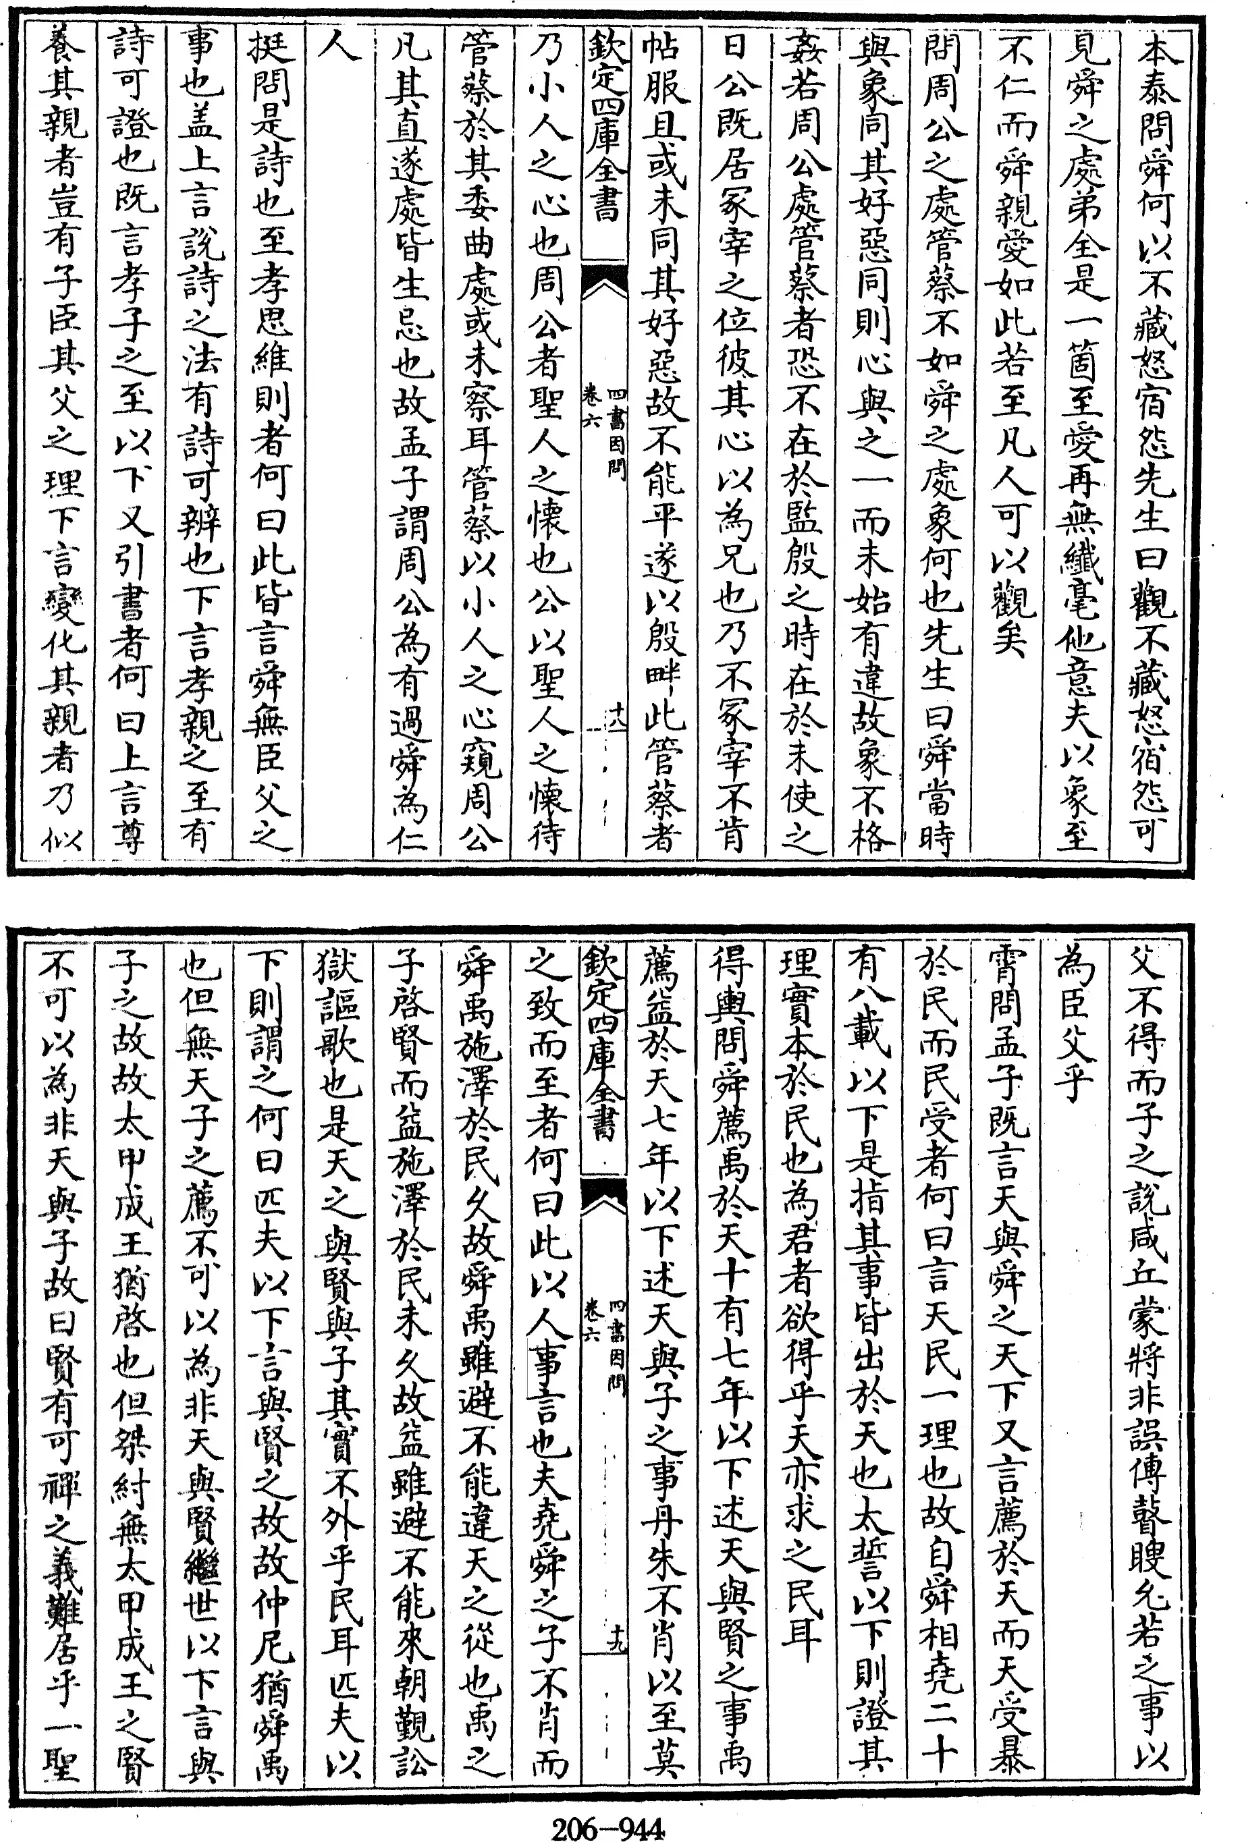 本泰問舜何以不藏怒宿怨先生曰觀不藏怒宿怨可
見舜之處弟全是一箇至愛再無纖毫他意夫以象至
不仁而舜親愛如此若至凡人可以觀矣
問周公之處管蔡不如舜之處象何也先生曰舜當時
與象同其好惡同則心與之一而未始有違故象不格
姦若周公處管蔡者恐不在於監殷之時在於未使之
日公既居冢宰之位彼其心以為兄也乃不冢宰不肯
帖服且或未同其好惡故不能平遂以殷畔此管蔡者
欽定四庫全書
四書因問
卷六
十八
乃小人之心也周公者聖人之懷也公以聖人之懷待
管蔡於其委曲處或未察耳管蔡以小人之心窺周公
凡其直遂處皆生忌也故孟子謂周公為有過舜為仁
人
挺問是詩也至孝思維則者何曰此皆言舜無臣父之
事也盖上言說詩之法有詩可辨也下言孝親之至有
詩可證也既言孝子之至以下又引書者何曰上言尊
養其親者豈有子臣其父之理下言變化其親者乃似
父不得而子之說咸丘蒙將非誤傳瞽瞍允若之事以
為臣父乎
霄問孟子既言天與舜之天下又言薦於天而天受暴
於民而民受者何曰言天民一理也故自舜相堯二十
有八載以下是指其事皆出於天也太誓以下則證其
理實本於民也為君者欲得乎天亦求之民耳
得輿問舜薦禹於天十有七年以下述天與賢之事禹
薦益於天七年以下述天與子之事丹朱不肖以至莫
欽定四庫全書
四書因問
卷六
十九
之致而至者何曰此以人事言也夫堯舜之子不肖而
舜禹施澤於民久故舜禹雖避不能違天之從也禹之
子啓賢而益施澤於民未久故益雖避不能來朝覲訟
獄謳歌也是天之與賢與子其實不外乎民耳匹夫以
下則謂之何曰匹夫以下言與賢之故故仲尼猶舜禹
也但無天子之薦不可以為非天與賢繼世以下言與
子之故故太甲成王猶啓也但桀紂無太甲成王之賢
不可以為非天與子故曰賢有可禪之義難居乎一聖
206-944